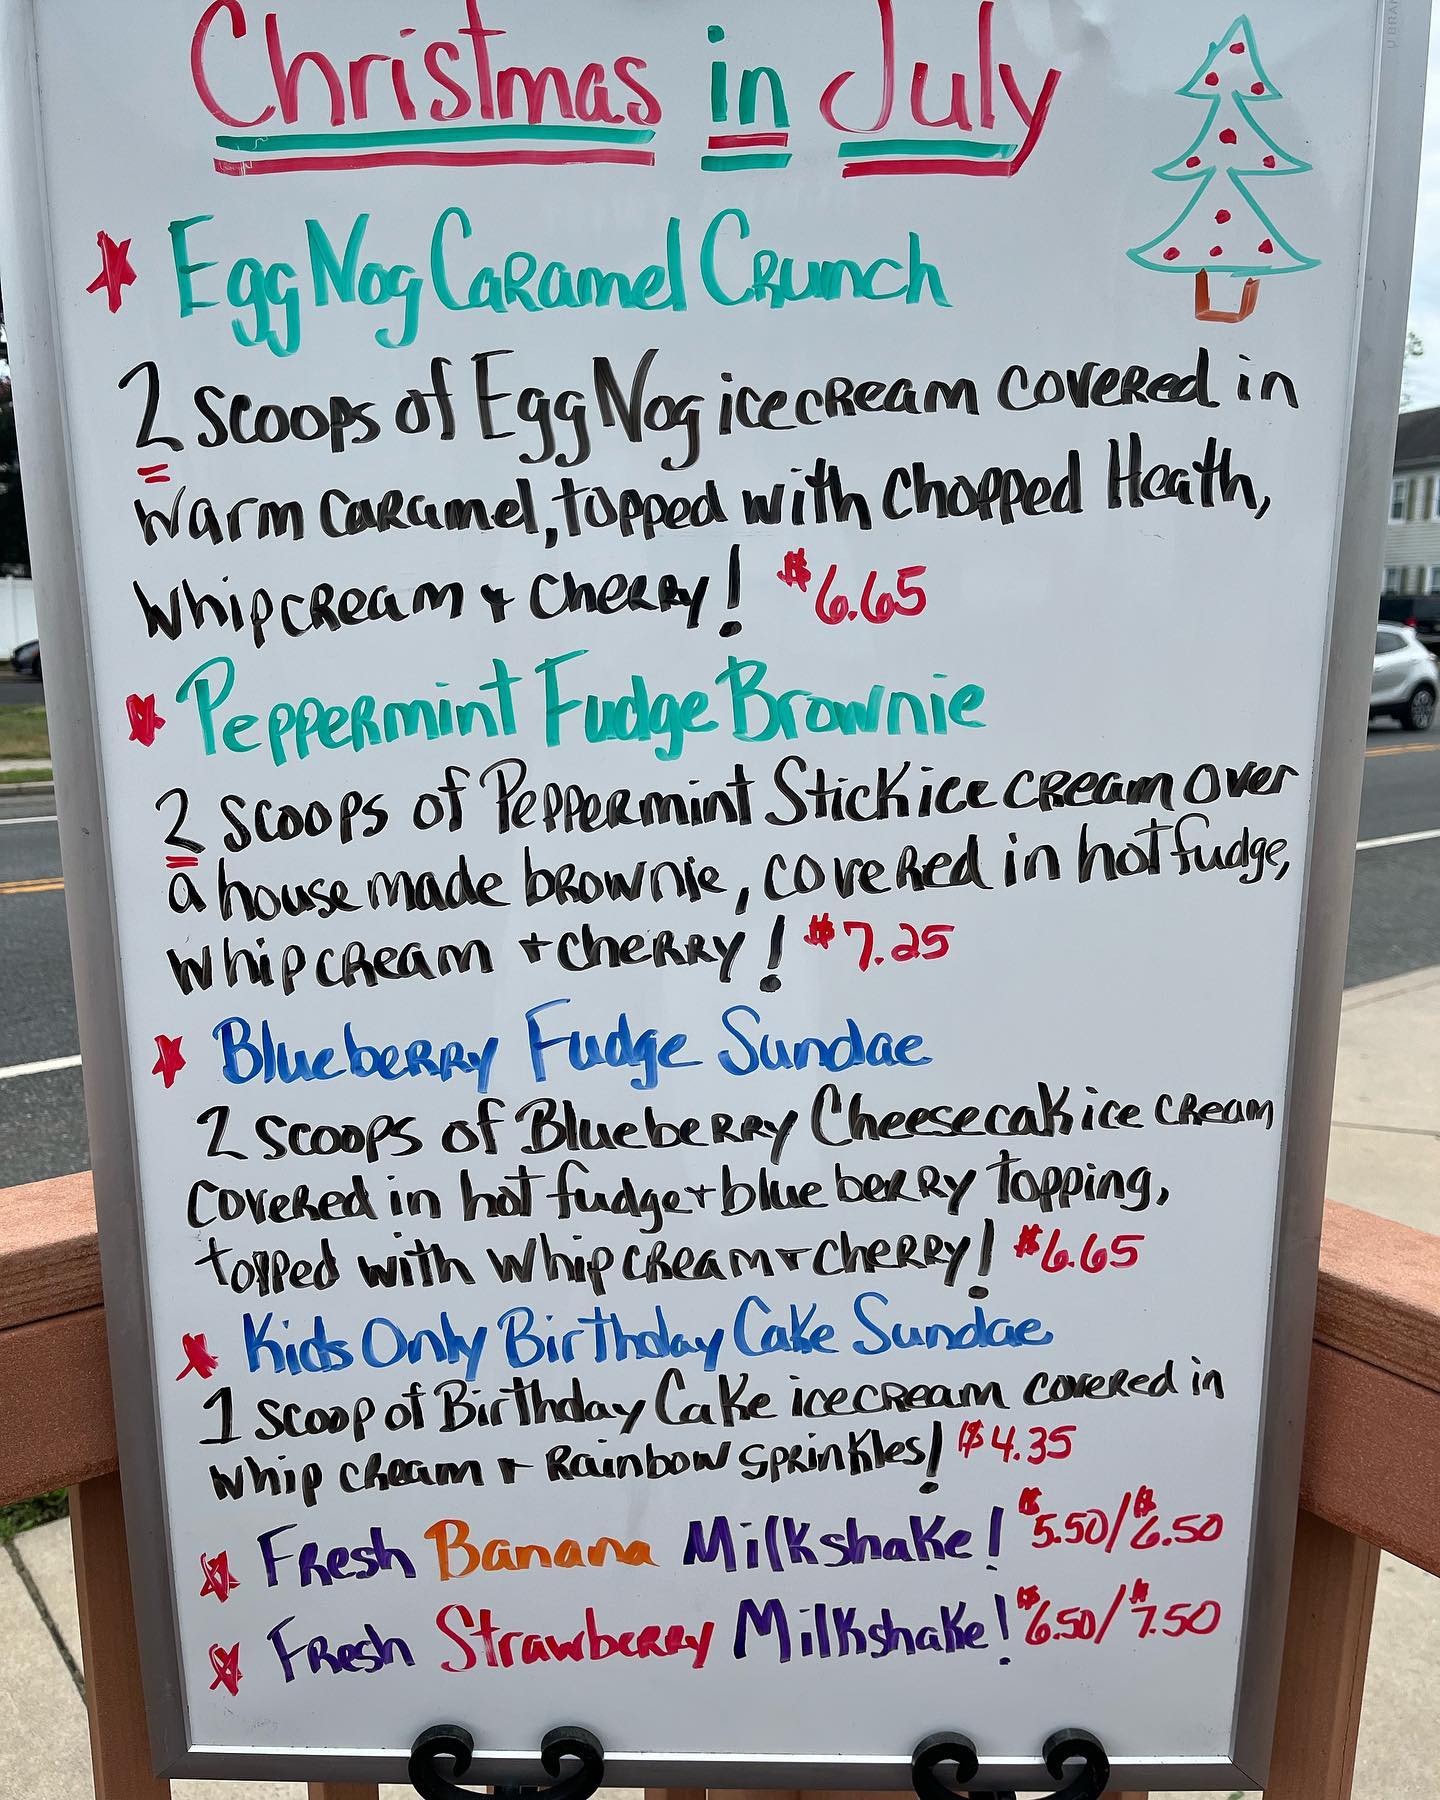 Christmas in July
Egg Nog Caramel Crunch
2 scoops of Egg Nog ice cream covered in
warm caramel, topped with chopped Heath,
whip cream + cherry! $6.65
Peppermint Fudge Brownie
2 scoops of Peppermint Stick ice cream over
a house made brownie, covered in hot fudge,
whip cream + cherry! $7.25
Blueberry Fudge Sundae
2 scoops of Blueberry Cheesecak ice cream
covered in hot fudge + blue berry topping,
topped with whip cream + cherry! $6.65
Kids Only Birthday Cake Sundae
1 scoop of Birthday Cake ice cream covered in
whip cream + Rainbow sprinkles! $4.35
Fresh Banana Milkshake! $5.50/$6.50
Fresh Strawberry Milkshake! $6.50/$7.50